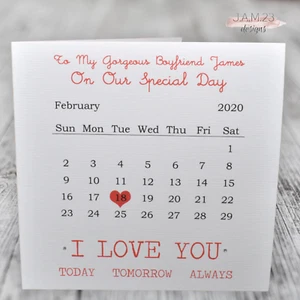 J.A.M.23
designs
To My Gorgeous Boyfriend James
On Our Special Day
February 2020
Sun Mon Tue Wed Thu Fri Sat
1
2 3 4 5 6 7 8
9 10 11 12 13 14 15
16 17 18 19 20 21 22
23 24 25 26 27 28 29
I LOVE YOU
TODAY TOMORROW ALWAYS